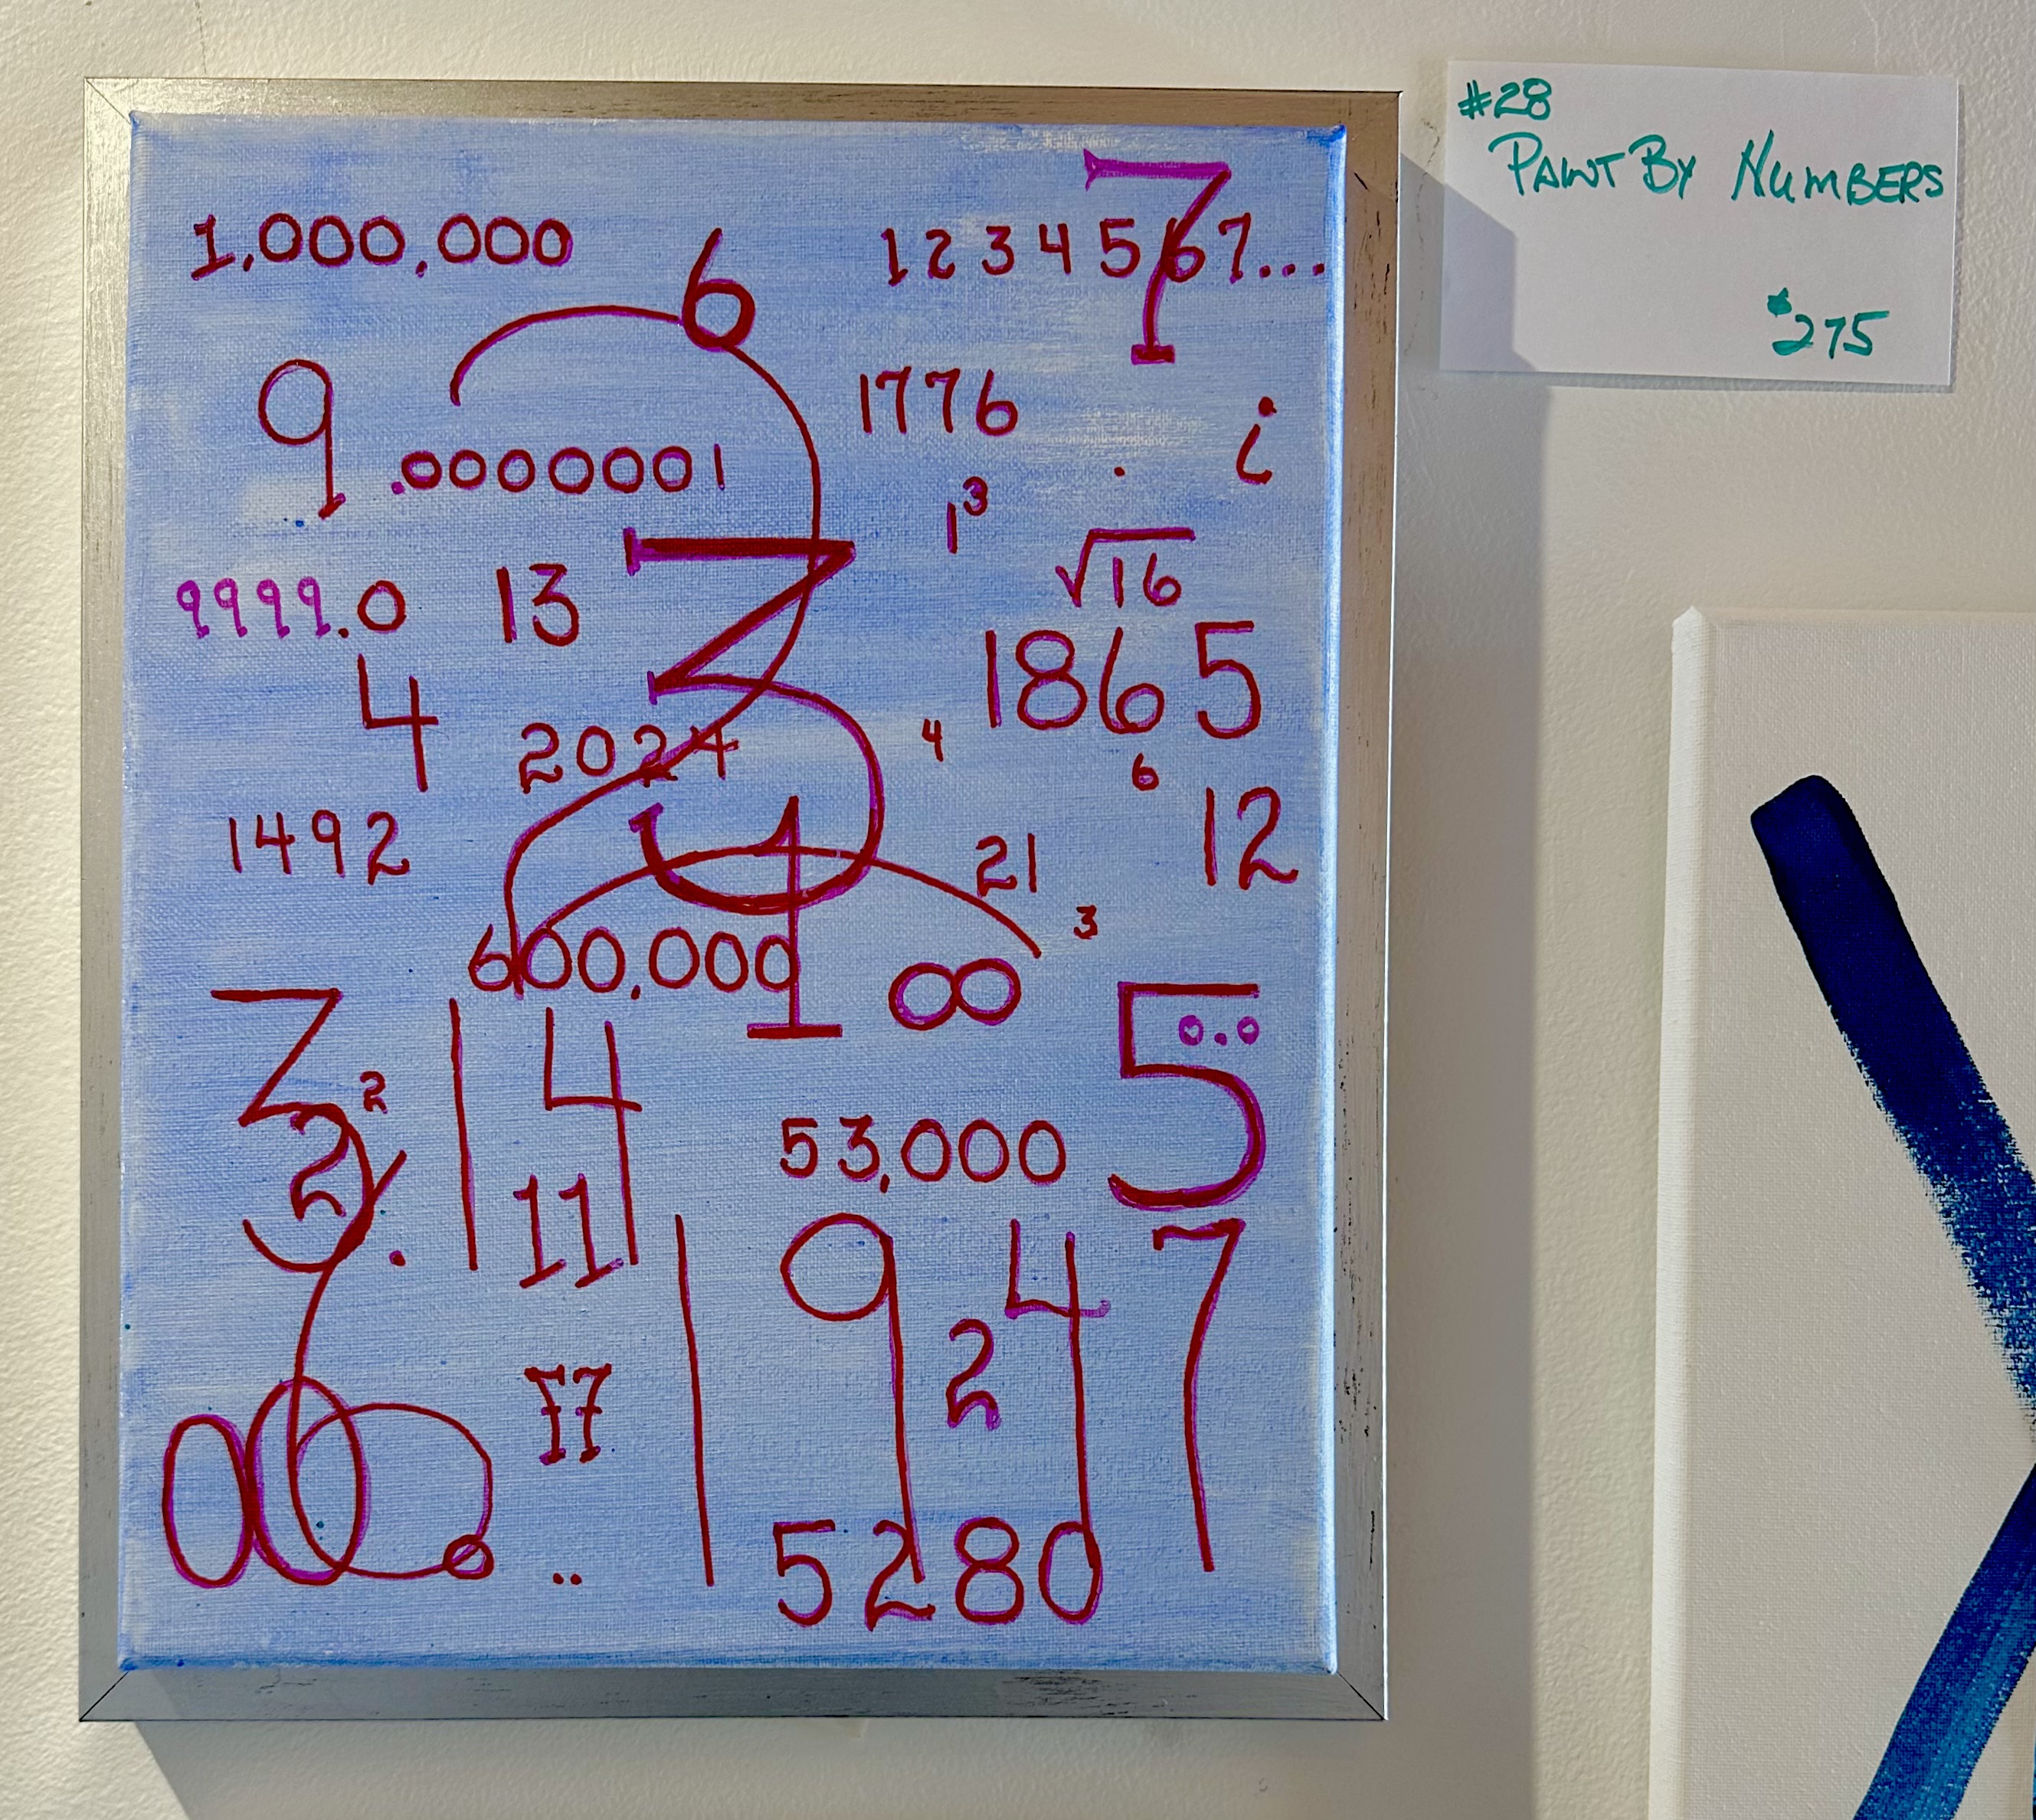 #28
PAINT BY NUMBERS
$275
1,000,000
6
7
1 2 3 4 5 6 7...
9
1776
i
.0000001
1³
9999.0
13
3
√16
4
1865
2024
4
6
1492
12
1
21
3
600,000
∞
3
2
4
5
0.0
2
11
53,000
9
4
7
2
77
00
5280